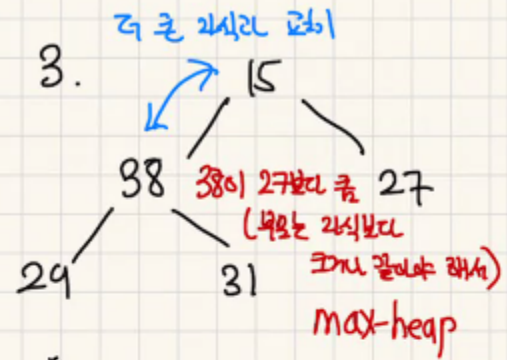 더 큰 자식과 교환
3.
15
38
38이 27보다 큼
27
(부모는 자식보다
29
31
크거나 같아야 해서)
max-heap